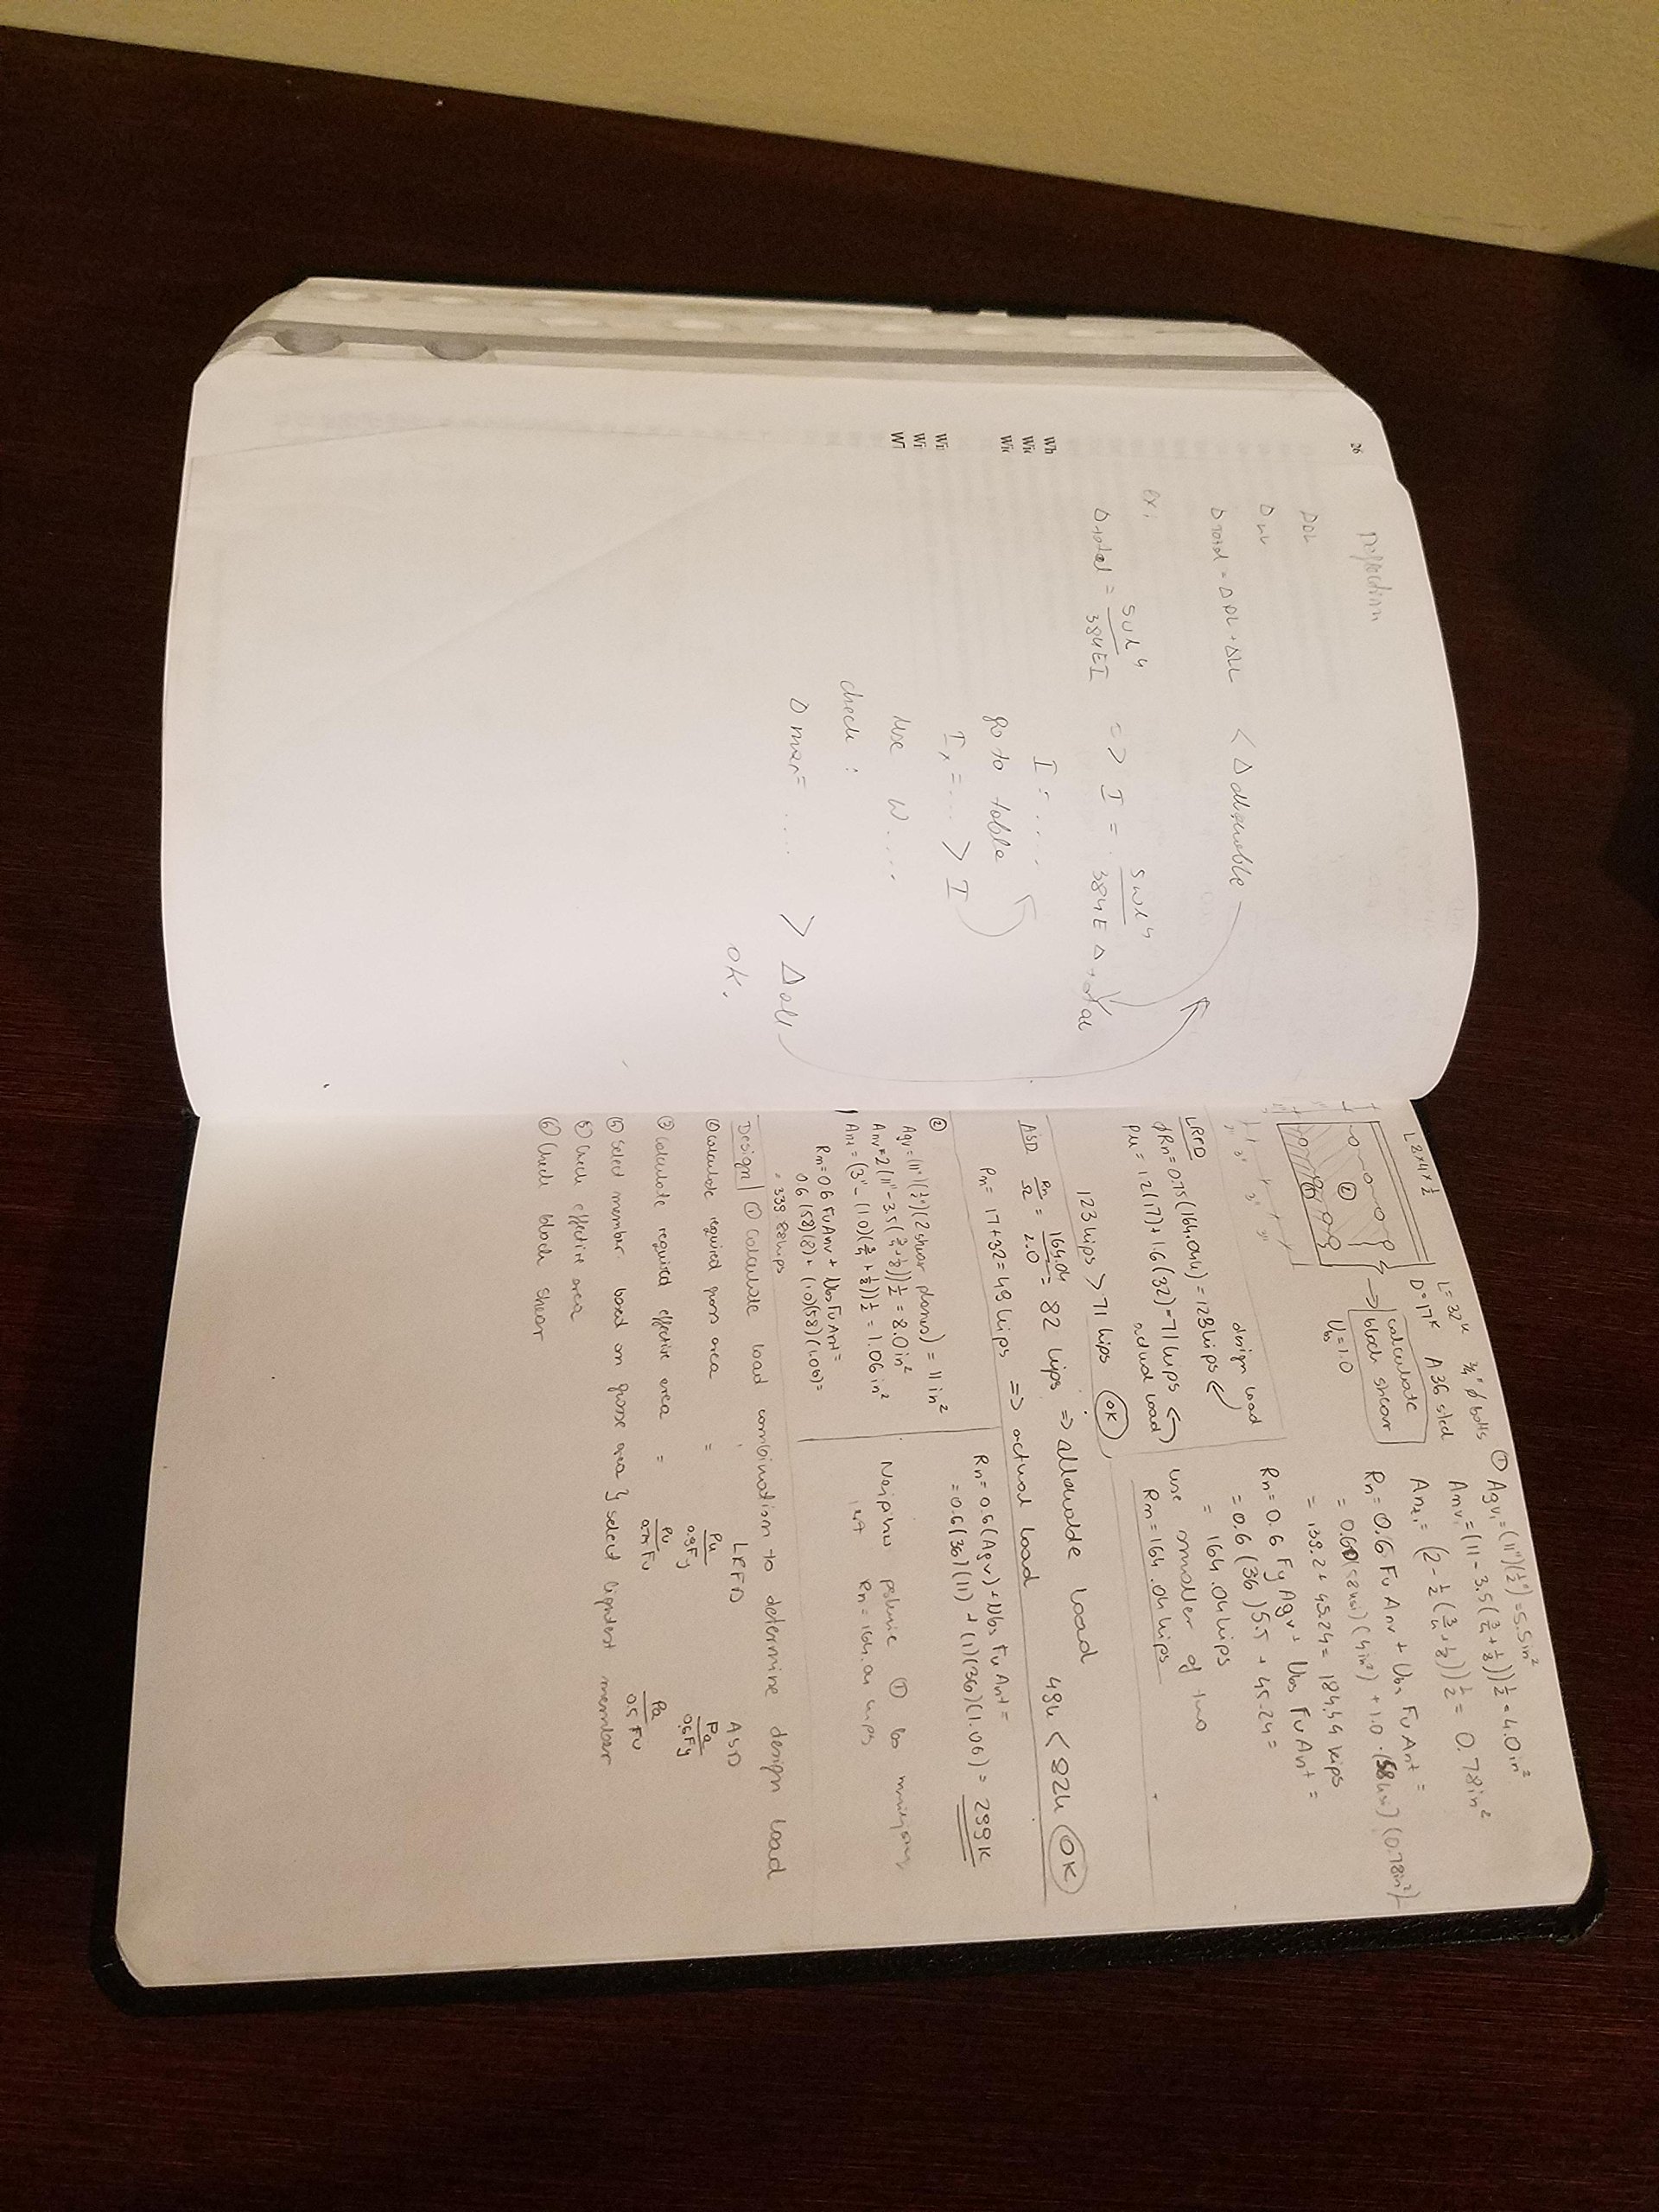 26
Deflection
ΔDL
ΔLL
Δtotal = ΔDL + ΔLL < Δallowable
ex:
Δtotal = 5wl⁴/384EI => I = 5wl⁴/384EΔtotal
I = ....
Wh
Wit
go to table
Wit
Ix = ... > I
Wi
Use W ....
Wi
W7
check :
Δmax = ..... > Δall
OK.
L = 32k 3/4" φ bolts
D = 17k A36 steel
calculate
block shear
Ubs = 1.0
① Agv₁ = (11")(1/2") = 5.5in²
Anv₁ = (11 - 3.5(3/4 + 1/8))1/2 = 4.0in²
Ant₁ = (2 - 1/2(3/4 + 1/8))1/2 = 0.78in²
Rn = 0.6 Fu Anv + Ubs Fu Ant =
= 0.60(58ksi)(4in²) + 1.0·(58ksi)(0.78in²)
= 139.2 + 45.24 = 184.44 kips
Rn = 0.6 Fy Agv + Ubs Fu Ant =
= 0.6(36)5.5 + 45.24 =
= 164.04 kips
use smaller of two
Rn = 164.04 kips
LRFD
design load
φRn = 0.75(164.04) = 123kips
Pu = 1.2(17) + 1.6(32) = 71kips
actual load
123kips > 71 kips OK
ASD Rn/Ω = 164.04/2.0 = 82 kips => allowable load
Pn = 17 + 32 = 49 kips => actual load
49k < 82k OK
②
Agv = (11")(1/2")(2 shear planes) = 11in²
Anv = 2(11" - 3.5(3/4 + 1/8))1/2 = 8.0in²
Ant = (3" - (1.0)(3/4 + 1/8))1/2 = 1.06in²
Rn = 0.6 Fu Anv + Ubs Fu Ant =
0.6(58)(8) + (1.0)(58)(1.06) =
= 339.88kips
Rn = 0.6(Agv) + Ubs Fu Ant =
= 0.6(36)(11) + (1)(36)(1.06) = 299k
①
Rn = 164.04 kips
Design ① Calculate load combination to determine design load
LRFD ASD
② calculate required gross area = Pu/0.9Fy Pa/0.6Fy
③ Calculate required effective area = Pu/0.75Fu Pa/0.5Fu
④ Select member based on gross area } select lightest member
⑤ Check effective area
⑥ Check block shear